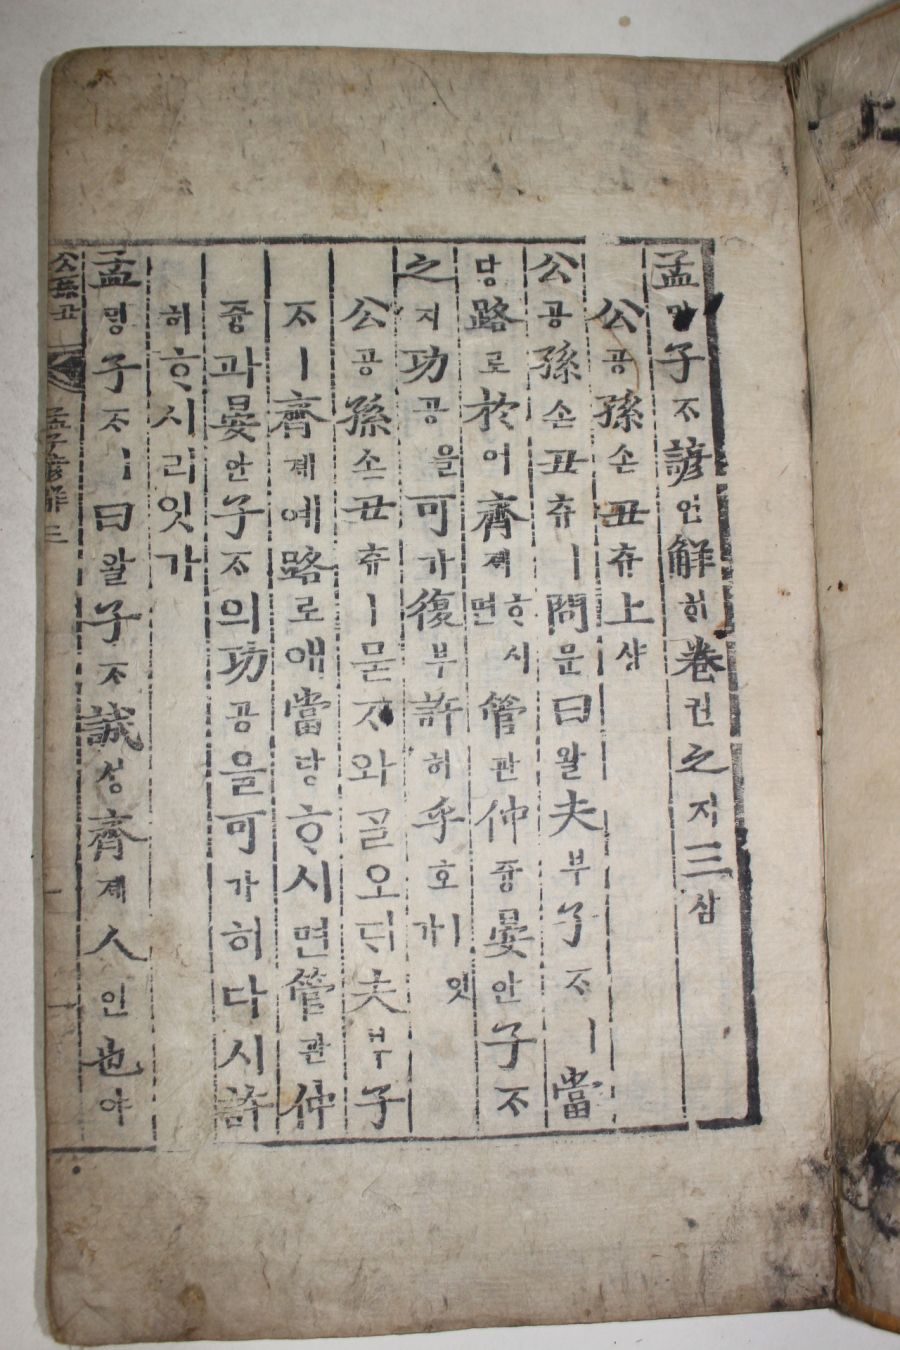 孟ᄆᆡᆼ子ᄌᆞ諺언解ᄒᆡ卷권之지三삼
公공孫손丑츄上샹
公공孫손丑츄ㅣ問문曰왈夫부子ᄌᆞㅣ當
당路로於어齊졔ᄒᆞ시면管관仲듕晏안子ᄌᆞ
之지功공을可가復부許허乎호ㅣ잇가
公공孫손丑츄ㅣ묻ᄌᆞ와ᄀᆞᆯ오ᄃᆡ夫부子
ᄌᆞㅣ齊졔예路로애當당ᄒᆞ시면管관仲
즁과晏안子ᄌᆞ의功공을可가히다시許
허ᄒᆞ시리잇가
孟ᄆᆡᆼ子ᄌᆞㅣ曰왈子ᄌᆞ誠셩齊졔人인也야
公孫丑 孟子諺解三